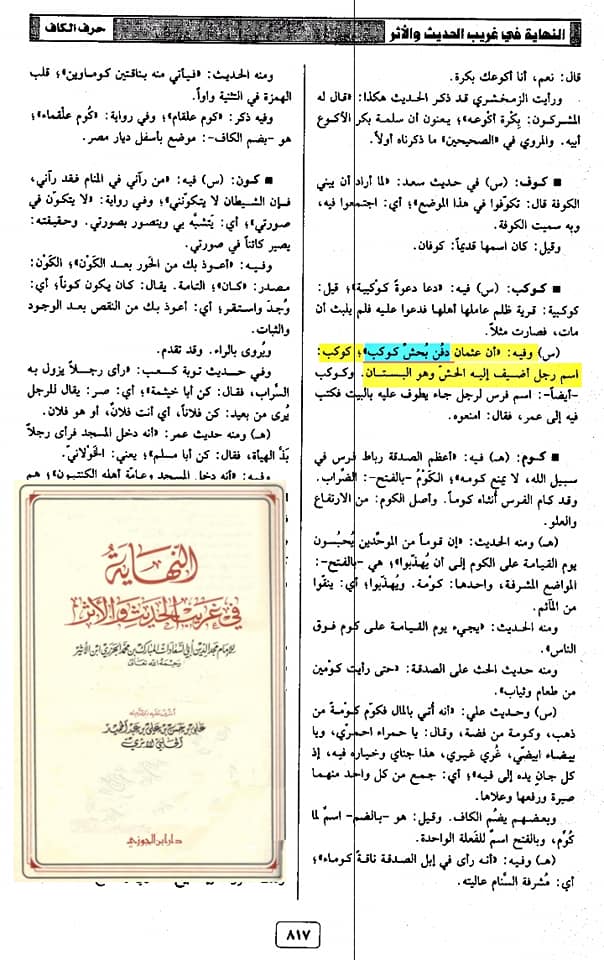 النهاية في غريب الحديث والأثر
حرف الكاف
قال: نعم، أنا أكوعك بكرة.
ورأيت الزمخشري قد ذكر الحديث هكذا: «قال له
المشركون: بِكْرة أكْوعه»؛ يعنون أن سلمة بكر الأكوع
أبيه. والمروي في «الصحيحين» ما ذكرناه أولاً.
■ كوف: (س) في حديث سعد: «لما أراد أن يبني
الكوفة قال: تكوّفوا في هذا الموضع»؛ أي: اجتمعوا فيه،
وبه سميت الكوفة.
وقيل: كان اسمها قديماً: كوفان.
■ كوكب: (س) فيه: «دعا دعوةً كوْكبية»؛ قيل:
كوكبية: قرية ظلم عاملها أهلها فدعوا عليه فلم يلبث أن
مات، فصارت مثلاً.
(س) وفيه: «أن عثمان دفُن بُحشّ كوكب»؛ كوكب:
اسم رجل أضيف إليه الحشّ وهو البستان. وكوكب
-أيضاً-: اسم فرس لرجل جاء يطوف عليه بالبيت فكتب
فيه إلى عمر، فقال: امنعوه.
■ كوم: (هـ) فيه: «أعظم الصدقة رباط فرس في
سبيل الله، لا يمنع كومه»؛ الكَوْمُ -بالفتح-: الضّراب.
وقد كام الفرس أنثاه كوماً. وأصل الكوم: من الارتفاع
والعلو.
(هـ) ومنه الحديث: «إن قوماً من الموحّدين يُحبسون
يوم القيامة على الكوم إلى أن يُهذّبوا»؛ هي -بالفتح-:
المواضع المشرفة، واحدها: كومْة. ويُهذّبوا؛ أي: ينقّوا
من المآثم.
ومنه الحديث: «يجيء يوم القيامة على كوم فوق
الناس».
ومنه حديث الحث على الصدقة: «حتى رأيت كومْين
من طعام وثياب».
(س) وحديث علي: «أنه أتي بالمال فكوّم كومْة من
ذهب، وكومة من فضة، وقال: يا حمراء احمرّي، ويا
بيضاء ابيضّي، غُري غيري، هذا جناي وخياره فيه، إذ
كل جانٍ يده إلى فيه»؛ أي: جمع من كل واحد منهما
صبرة ورفعها وعلاها.
وبعضهم يضُم الكاف. وقيل: هو -بالضم- اسمٌ لما
كُوّم، وبالفتح اسمٌ للفَعلة الواحدة.
(هـ) وفيه: «أنه رأى في إبل الصدقة ناقةً كَوماء»؛
أي: مُشرفة السَّنام عاليَته.
ومنه الحديث: «فيأتي منه بناقتين كوماوين»؛ قلب
الهمزة في التثنية واواً.
وفيه ذكر: «كوم علقام»؛ وفي رواية: «كُوم علْقماء»؛
هو -بضم الكاف-: موضع بأسفل ديار مصر.
■ كون: (س) فيه: «من رآني في المنام فقد رآني،
فإن الشيطان لا يتكوّنني»؛ وفي رواية: «لا يتكوّن في
صورتي»؛ أي: يَتشبّه بي ويتصور بصورتي. وحقيقته:
يصير كائناً في صورتي.
وفيه: «أعوذ بك من الحَور بعد الكَوْن»؛ الكَوْن:
مصدر: «كان»؛ التامة. يقال: كان يكون كوناً؛ أي:
وُجدَ واستقر؛ أي: أعوذ بك من النقص بعد الوجود
والثبات.
ويُروى بالراء. وقد تقدم.
وفي حديث توبة كعب: «رأى رجلاً يزول به
السّراب، فقال: كن أبا خيثمة»؛ أي: صر. يقال للرجل
يُرى من بعيد: كن فلاناً، أي أنت فلانٌ، أو هو فلان.
(هـ) ومنه حديث عمر: «أنه دخل المسجد فرأى رجلاً
بَذّ الهيأة، فقال: كن أبا مسلم»؛ يعني: الخَوْلانيّ.
وفيه: «أنه دخل المسجد وعامة أهله الكنتيون»؛ هم
النهاية
في غريب الحديث والأثر
للإمام مجد الدين أبي السعادات المبارك بن محمد الجزري ابن الأثير
رحمه الله تعالى
أشرف عليه وقدّم له
علي بن حسن بن علي بن عبد الحميد
الحلبي الأثري
دار ابن الجوزي
٨١٧